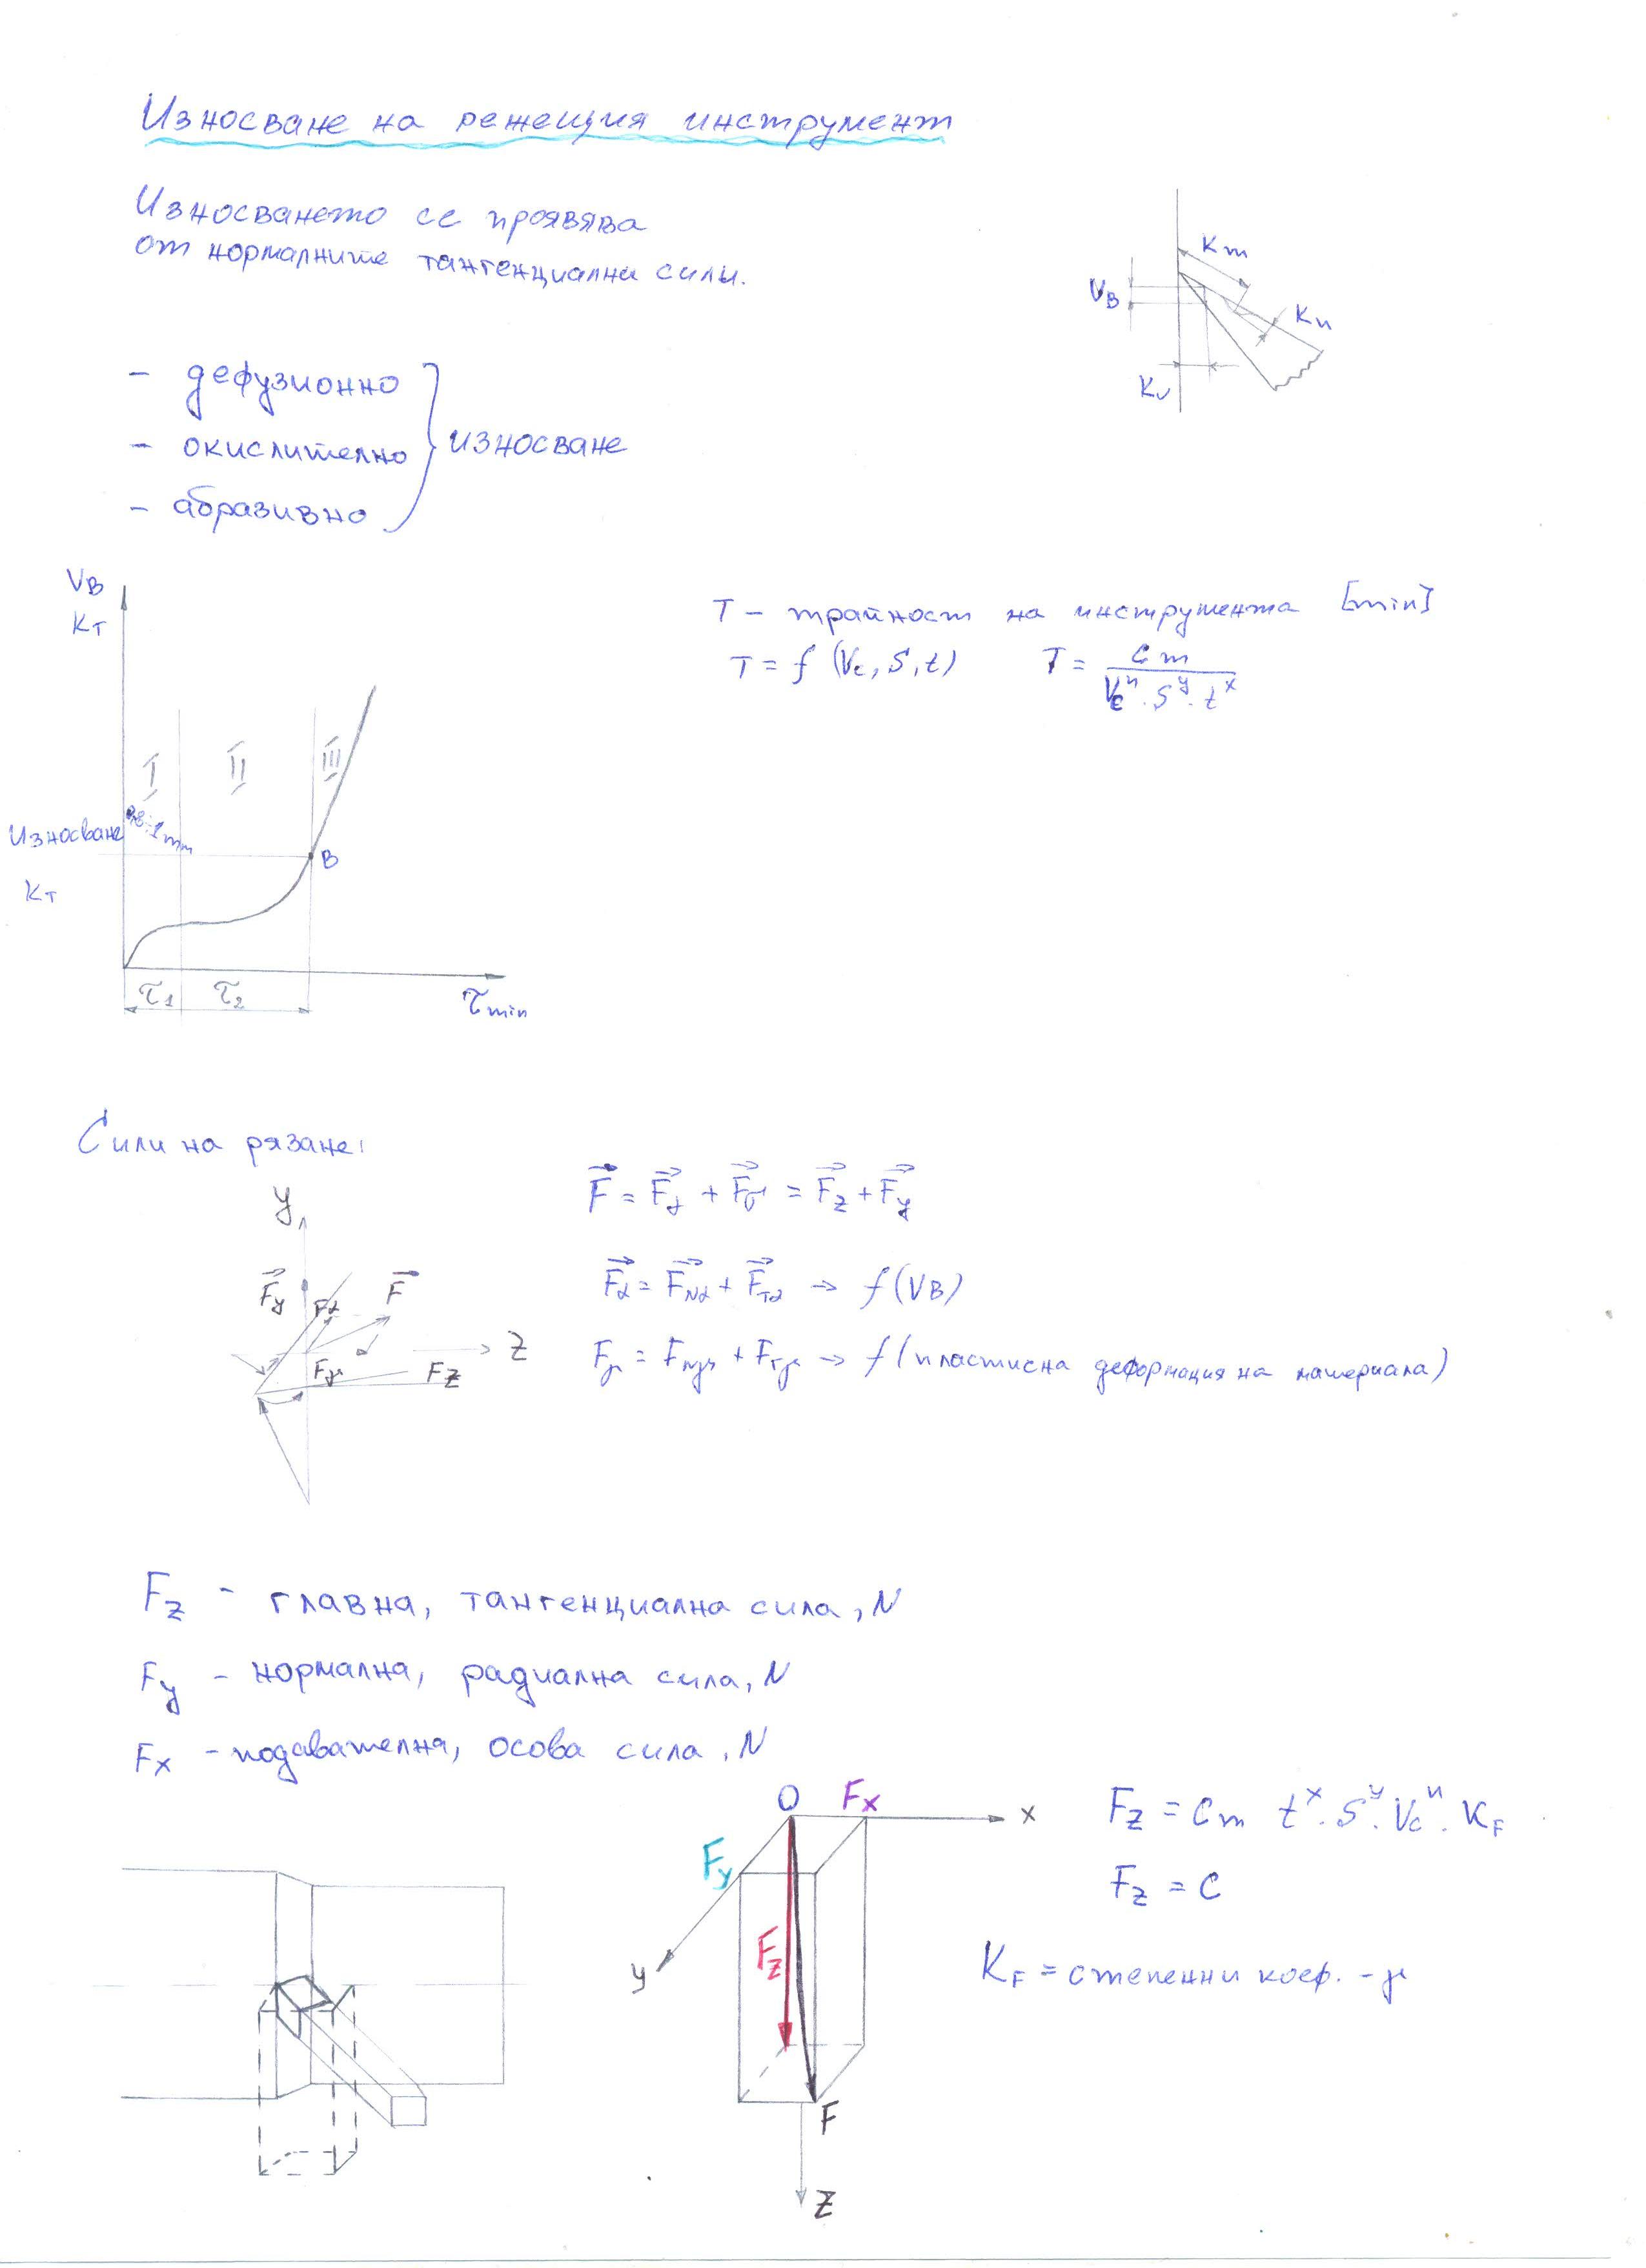 Износване на режещия инструмент
Износването се проявява
от нормалните тангенциални сили.
Km
VB
Kn
Kv
- дефузионно
- окислително
- абразивно
износване
VB
KT
I II III
Износване
1mm
B
KT
τ1 τ2
τmin
T – трайност на инструмента [min]
T = f (Vc, S, t) T = Cm / Vc^n . S^y . t^x
Сили на рязане:
y
Fy Fα F
Z
Fγ Fz
F = Fα + Fγ = Fz + Fy
Fα = FNα + FTα → f(VB)
Fγ = FNγ + FTγ → f(пластисна деформация на материала)
Fz - главна, тангенциална сила, N
Fy - нормална, радиална сила, N
Fx - подавателна, осова сила, N
O Fx x
Fy
Fz
y
F
Z
Fz = Cm t^x . S^y . Vc^n . KF
Fz = C
KF = степенни коеф. - γ